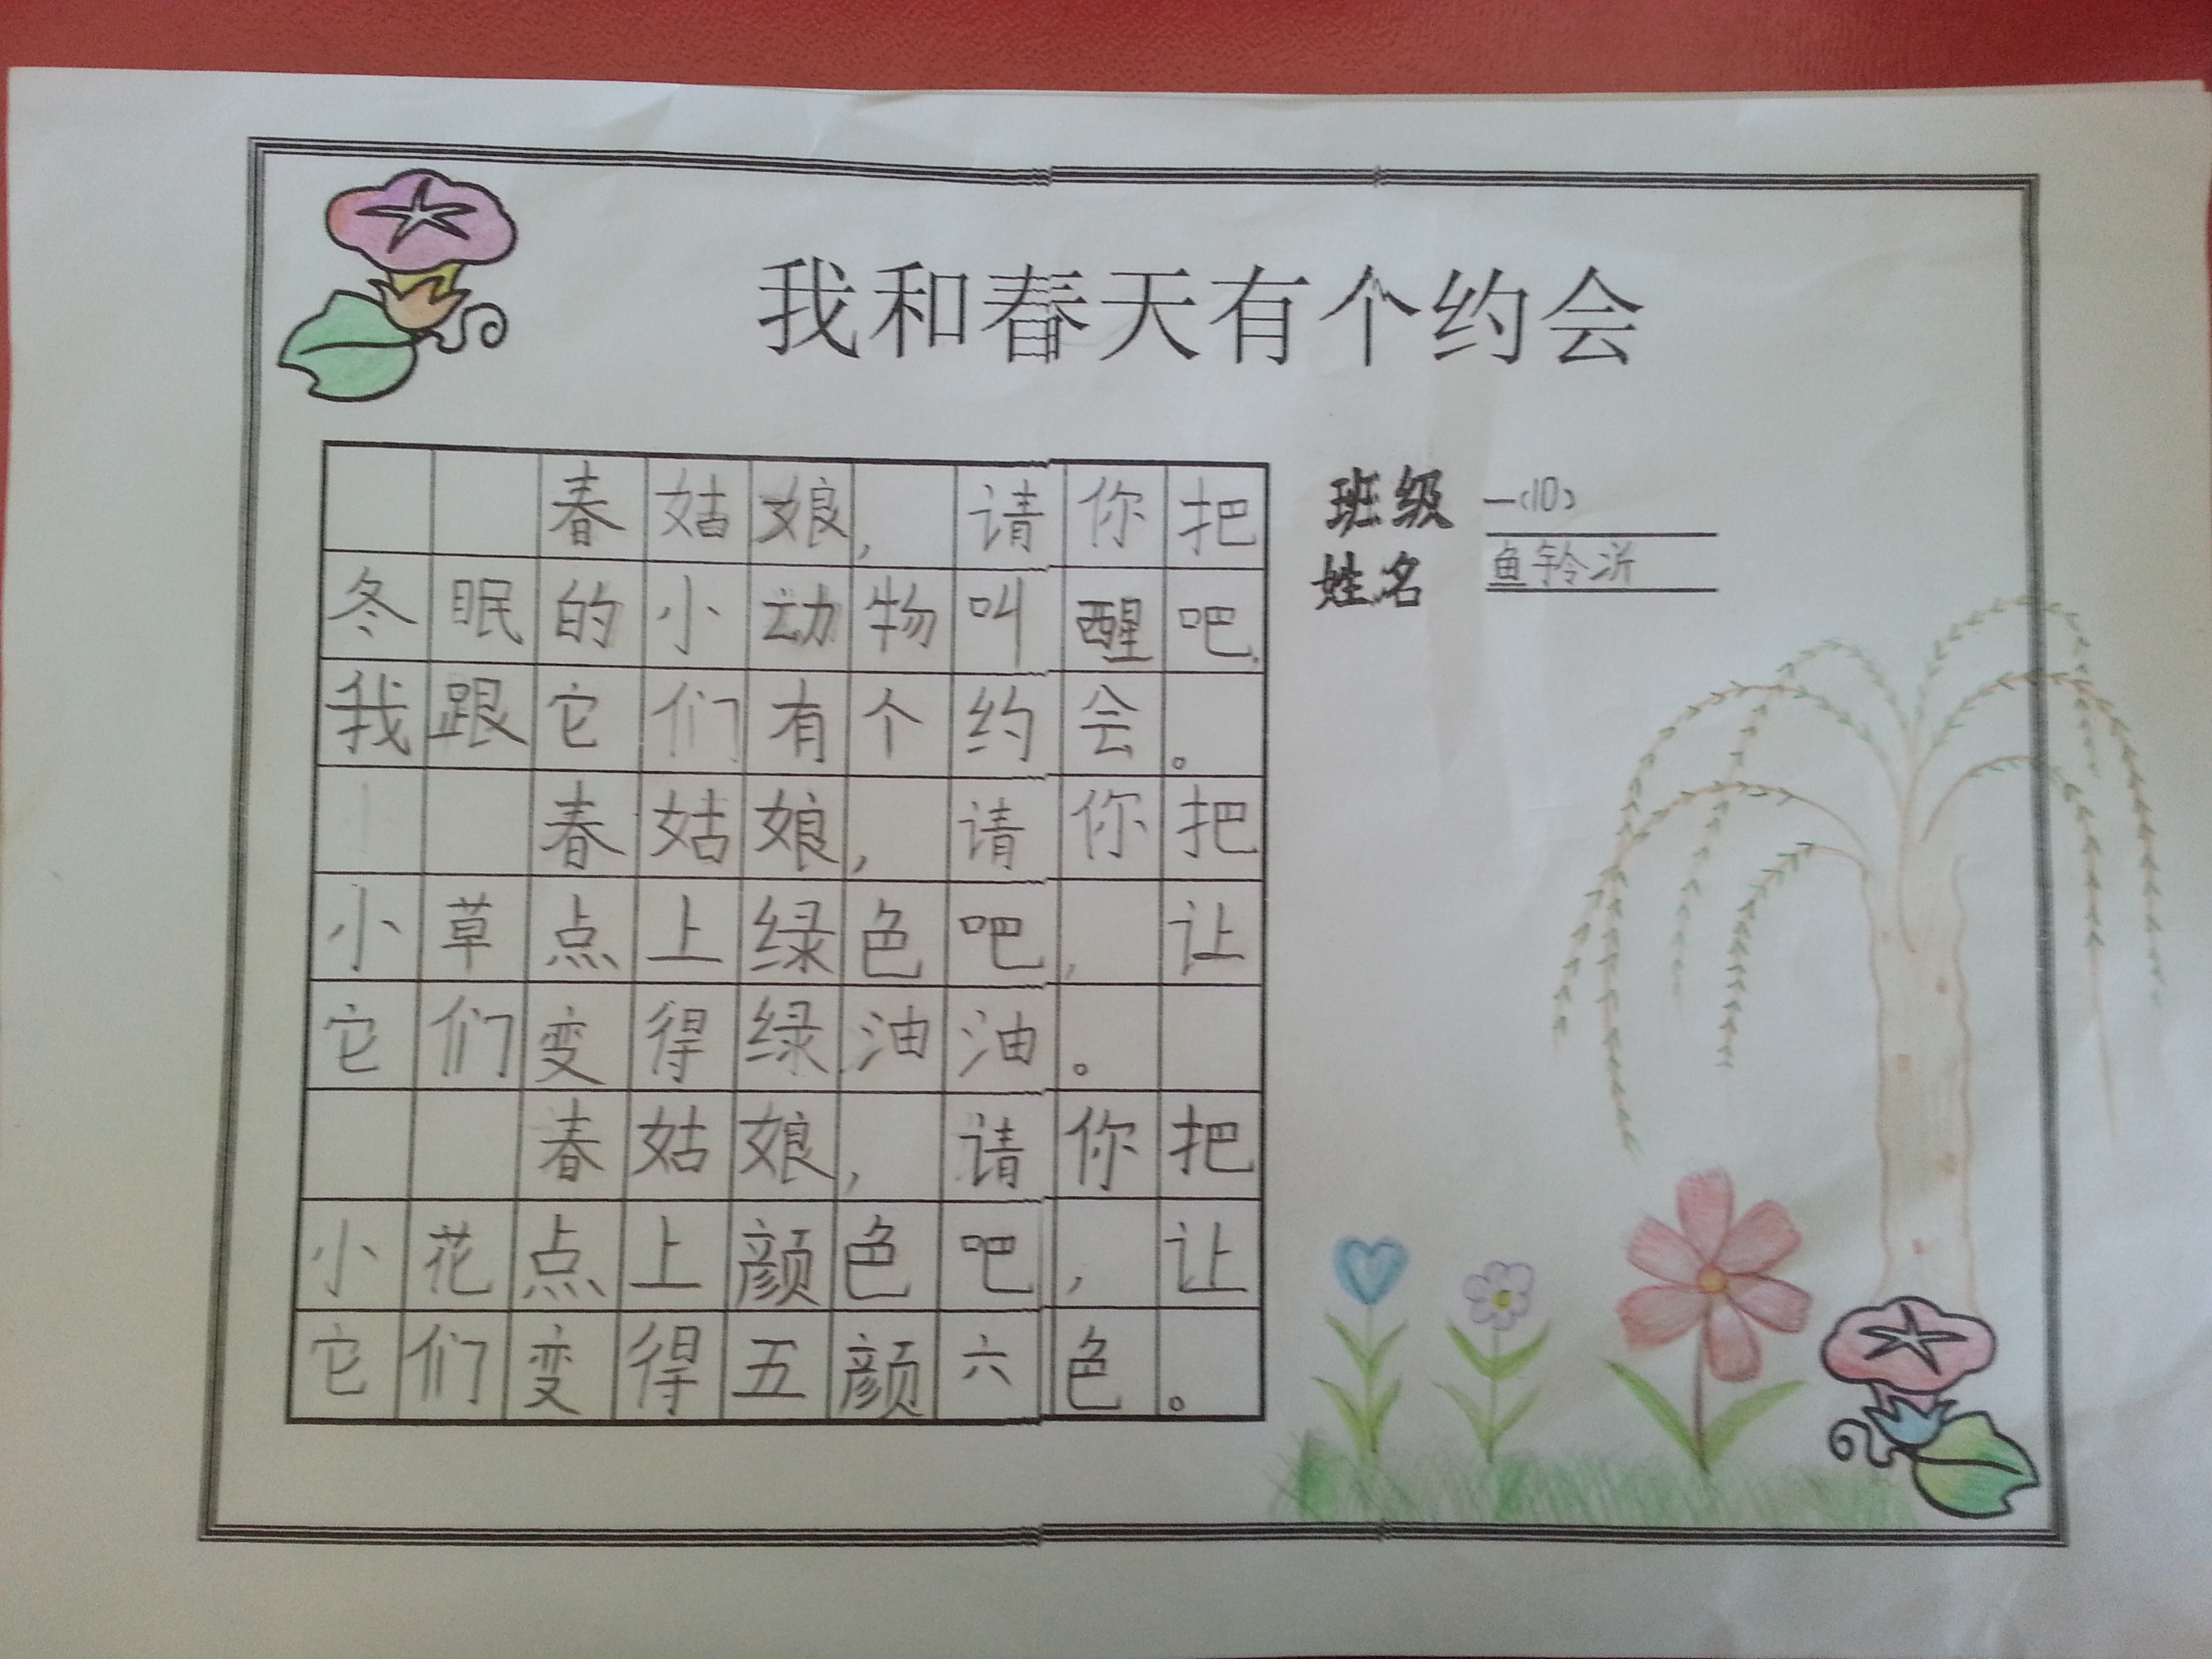 我和春天有个约会
春姑娘，请你把
冬眠的小动物叫醒吧.
我跟它们有个约会。
春姑娘，请你把
小草点上绿色吧，让
它们变得绿油油。
春姑娘，请你把
小花点上颜色吧，让
它们变得五颜六色。
班级 一(10)
姓名 鱼